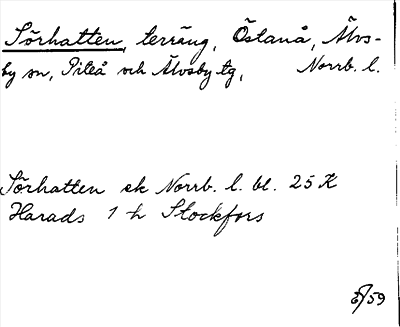 Sörhatten, terräng, Östanå, Älvs-
by sn, Piteå och Älvsby tg, Norrb. l.
Sörhatten ek Norrb. l. bl. 25 K
Harads 1 h Stockfors
/59